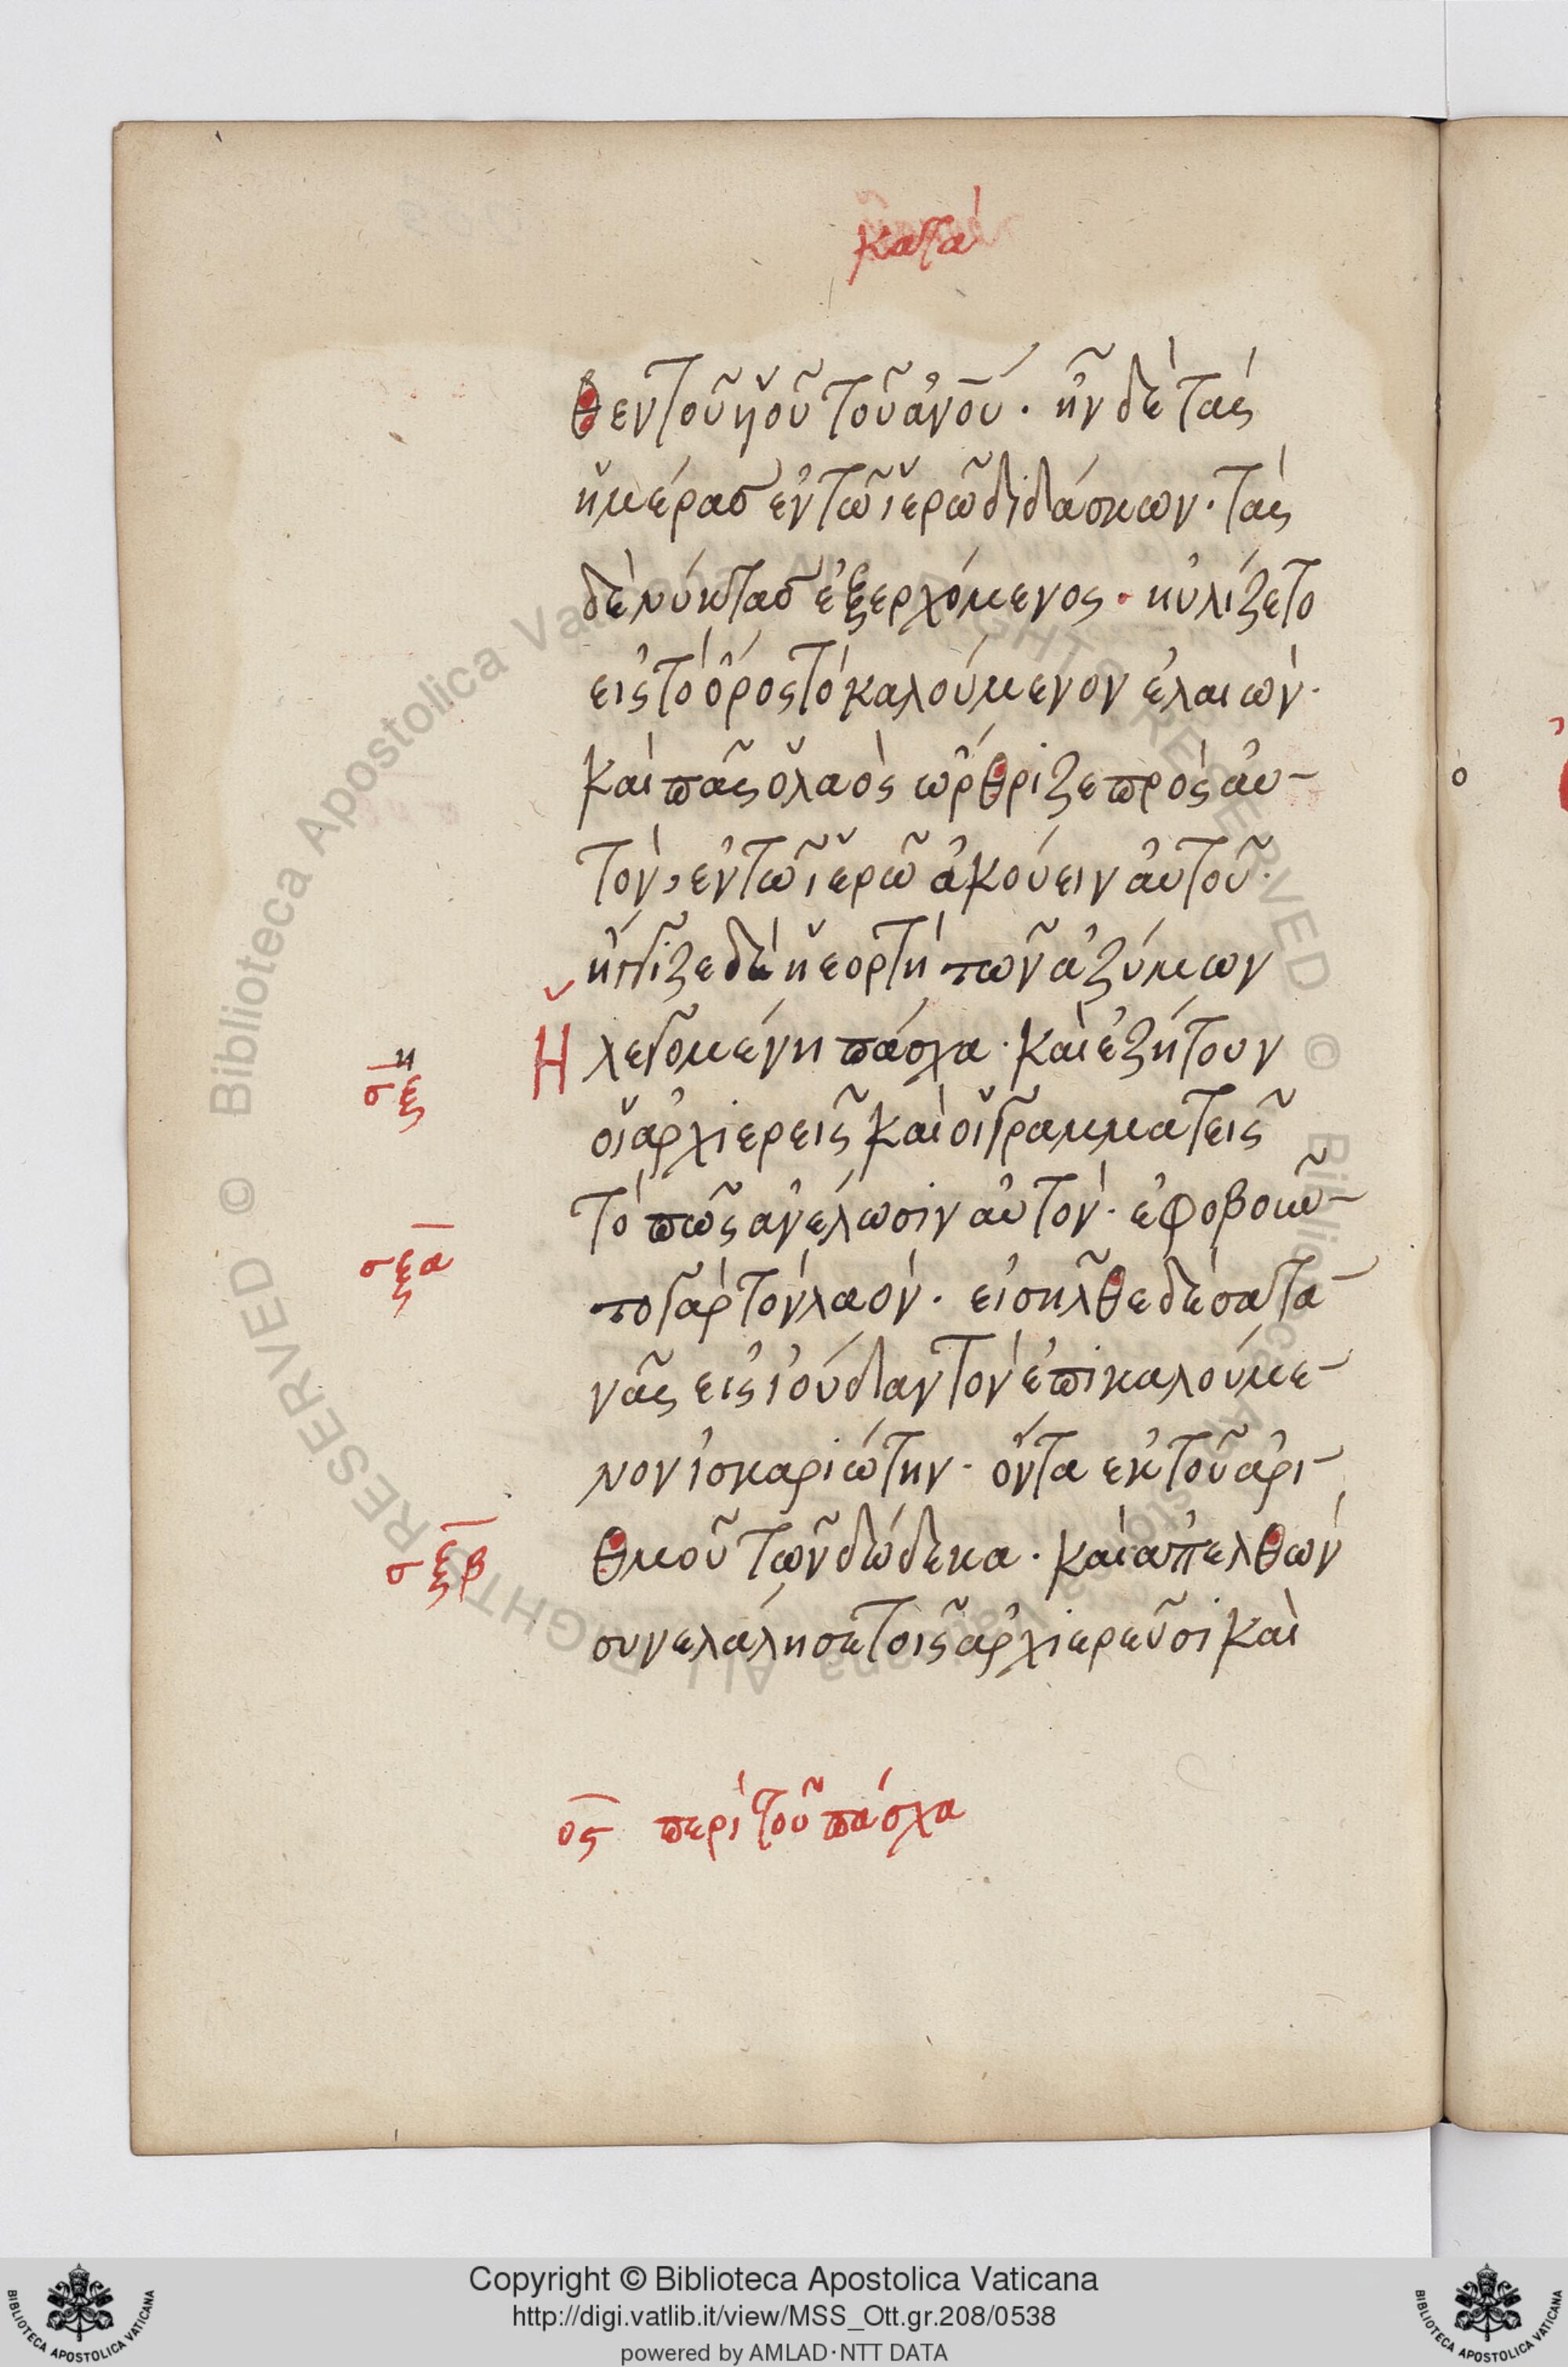 κατὰ
θεν τοῦ ὑοῦ τοῦ ἀνοῦ. ἦν δὲ τὰς
ἡμέρασ ἐν τῶ ἱερῶ διδάσκων. τὰς
δὲ νύκτασ ἐξερχόμενος. ηὐλίζετο
εἰς τὸ ὄρος τὸ καλούμενον ἐλαιών.
καὶ πᾶς ὁ λαὸς ὤρθριζε πρὸς αὐ-
τὸν, ἐν τῶ ἱερῶ ἀκούειν αὐτοῦ.
ἤγγιζε δὲ ἡ ἑορτὴ τῶν ἀζύμων
Ἡ λεγομένη πάσχα. καὶ ἐζήτουν
οἱ ἀρχιερεῖς καὶ οἱ γραμματεῖς
τὸ πῶς ἀνέλωσιν αὐτὸν. ἐφοβοῦν-
το γὰρ τὸν λαόν. εἰσῆλθε δὲ σατα-
νᾶς εἰς ἰούδαν τὸν ἐπικαλούμε-
νον ἰσκαριώτην. ὄντα ἐκ τοῦ ἀρι-
θμοῦ τῶν δώδεκα. καὶ ἀπελθὼν
συνελάλησε τοῖς ἀρχιερεῦσι καὶ
σξ
η
σξα
σξβ
ος περὶ τοῦ πάσχα
Copyright © Biblioteca Apostolica Vaticana
http://digi.vatlib.it/view/MSS_Ott.gr.208/0538
powered by AMLAD·NTT DATA
BIBLIOTECA APOSTOLICA VATICANA
BIBLIOTECA APOSTOLICA VATICANA
© Biblioteca Apostolica Vaticana ALL RIGHTS RESERVED © Biblioteca Apostolica Vaticana ALL RIGHTS RESERVED